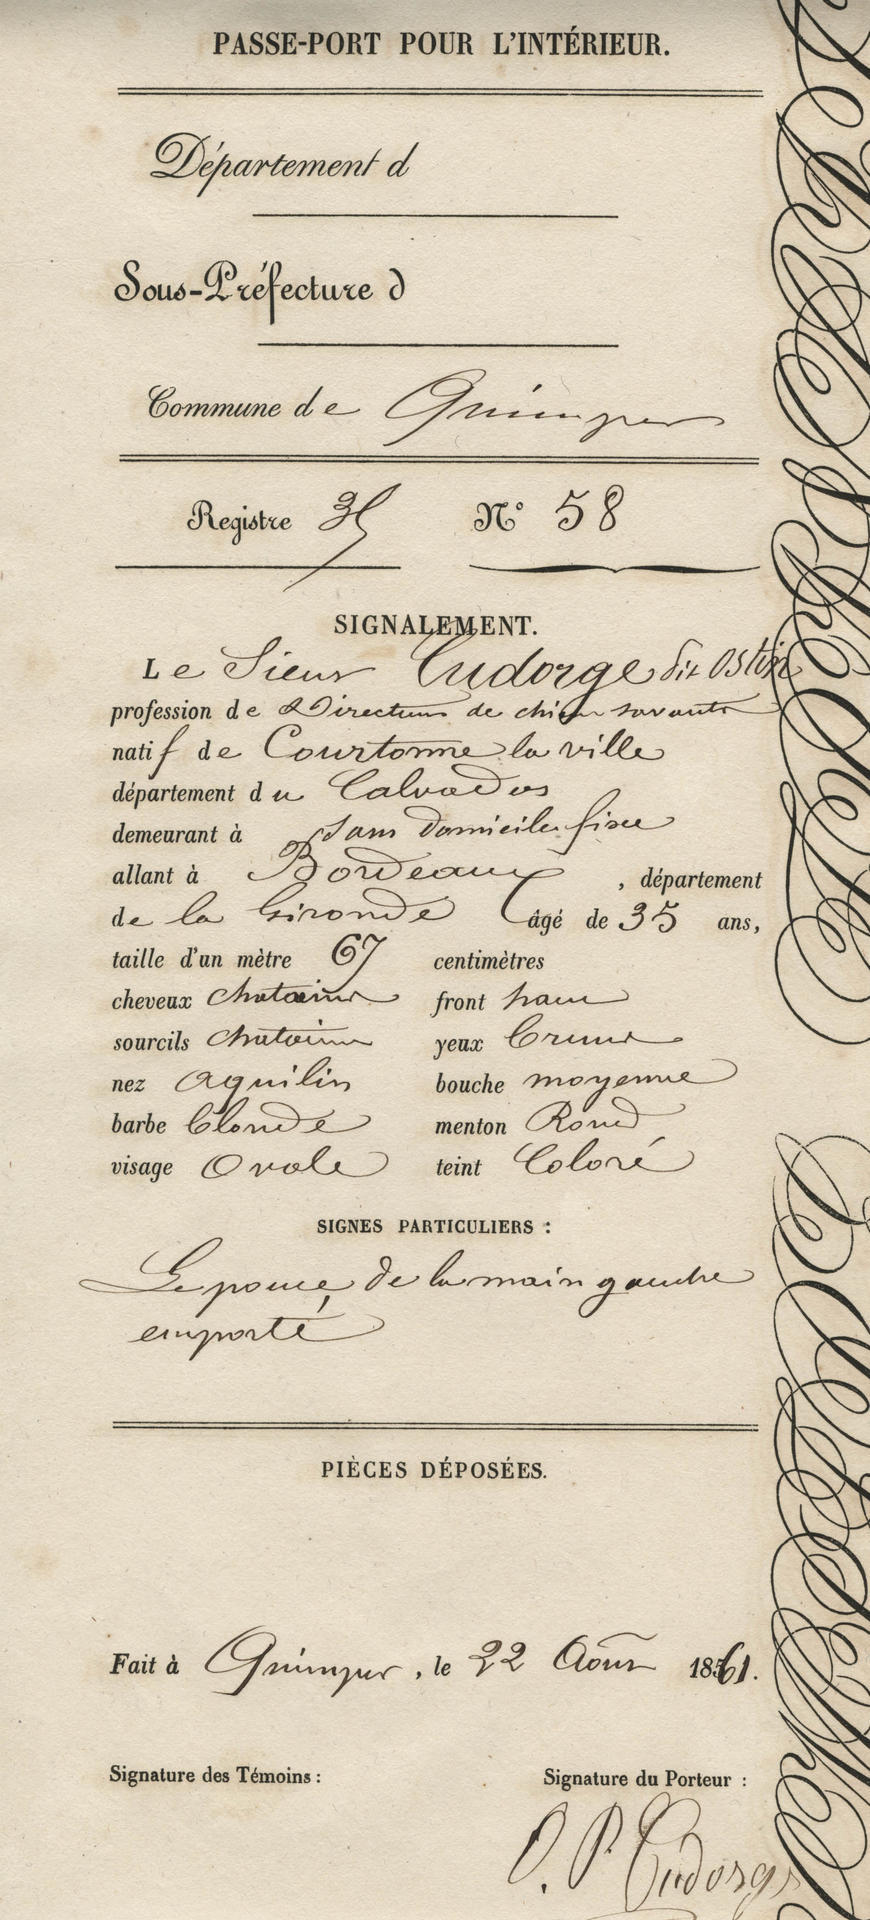 PASSE-PORT POUR L'INTÉRIEUR.
Département d
Sous-Préfecture d
Commune de Quimper
Registre 35 N° 58
SIGNALEMENT.
Le Sieur Cudorge dit Ostin
profession de Directeur de chiens savants
natif de Courtonne la ville
département du Calvados
demeurant à sans domicile fixe
allant à Bordeaux, département
de la Gironde âgé de 35 ans,
taille d'un mètre 67 centimètres
cheveux chatains front haut
sourcils chatains yeux bruns
nez aquilin bouche moyenne
barbe blonde menton Rond
visage Ovale teint Coloré
SIGNES PARTICULIERS :
Le pouce de la main gauche
emporté
PIÈCES DÉPOSÉES.
Fait à Quimper, le 22 Août 1861.
Signature des Témoins : Signature du Porteur :
O. P. Cudorge